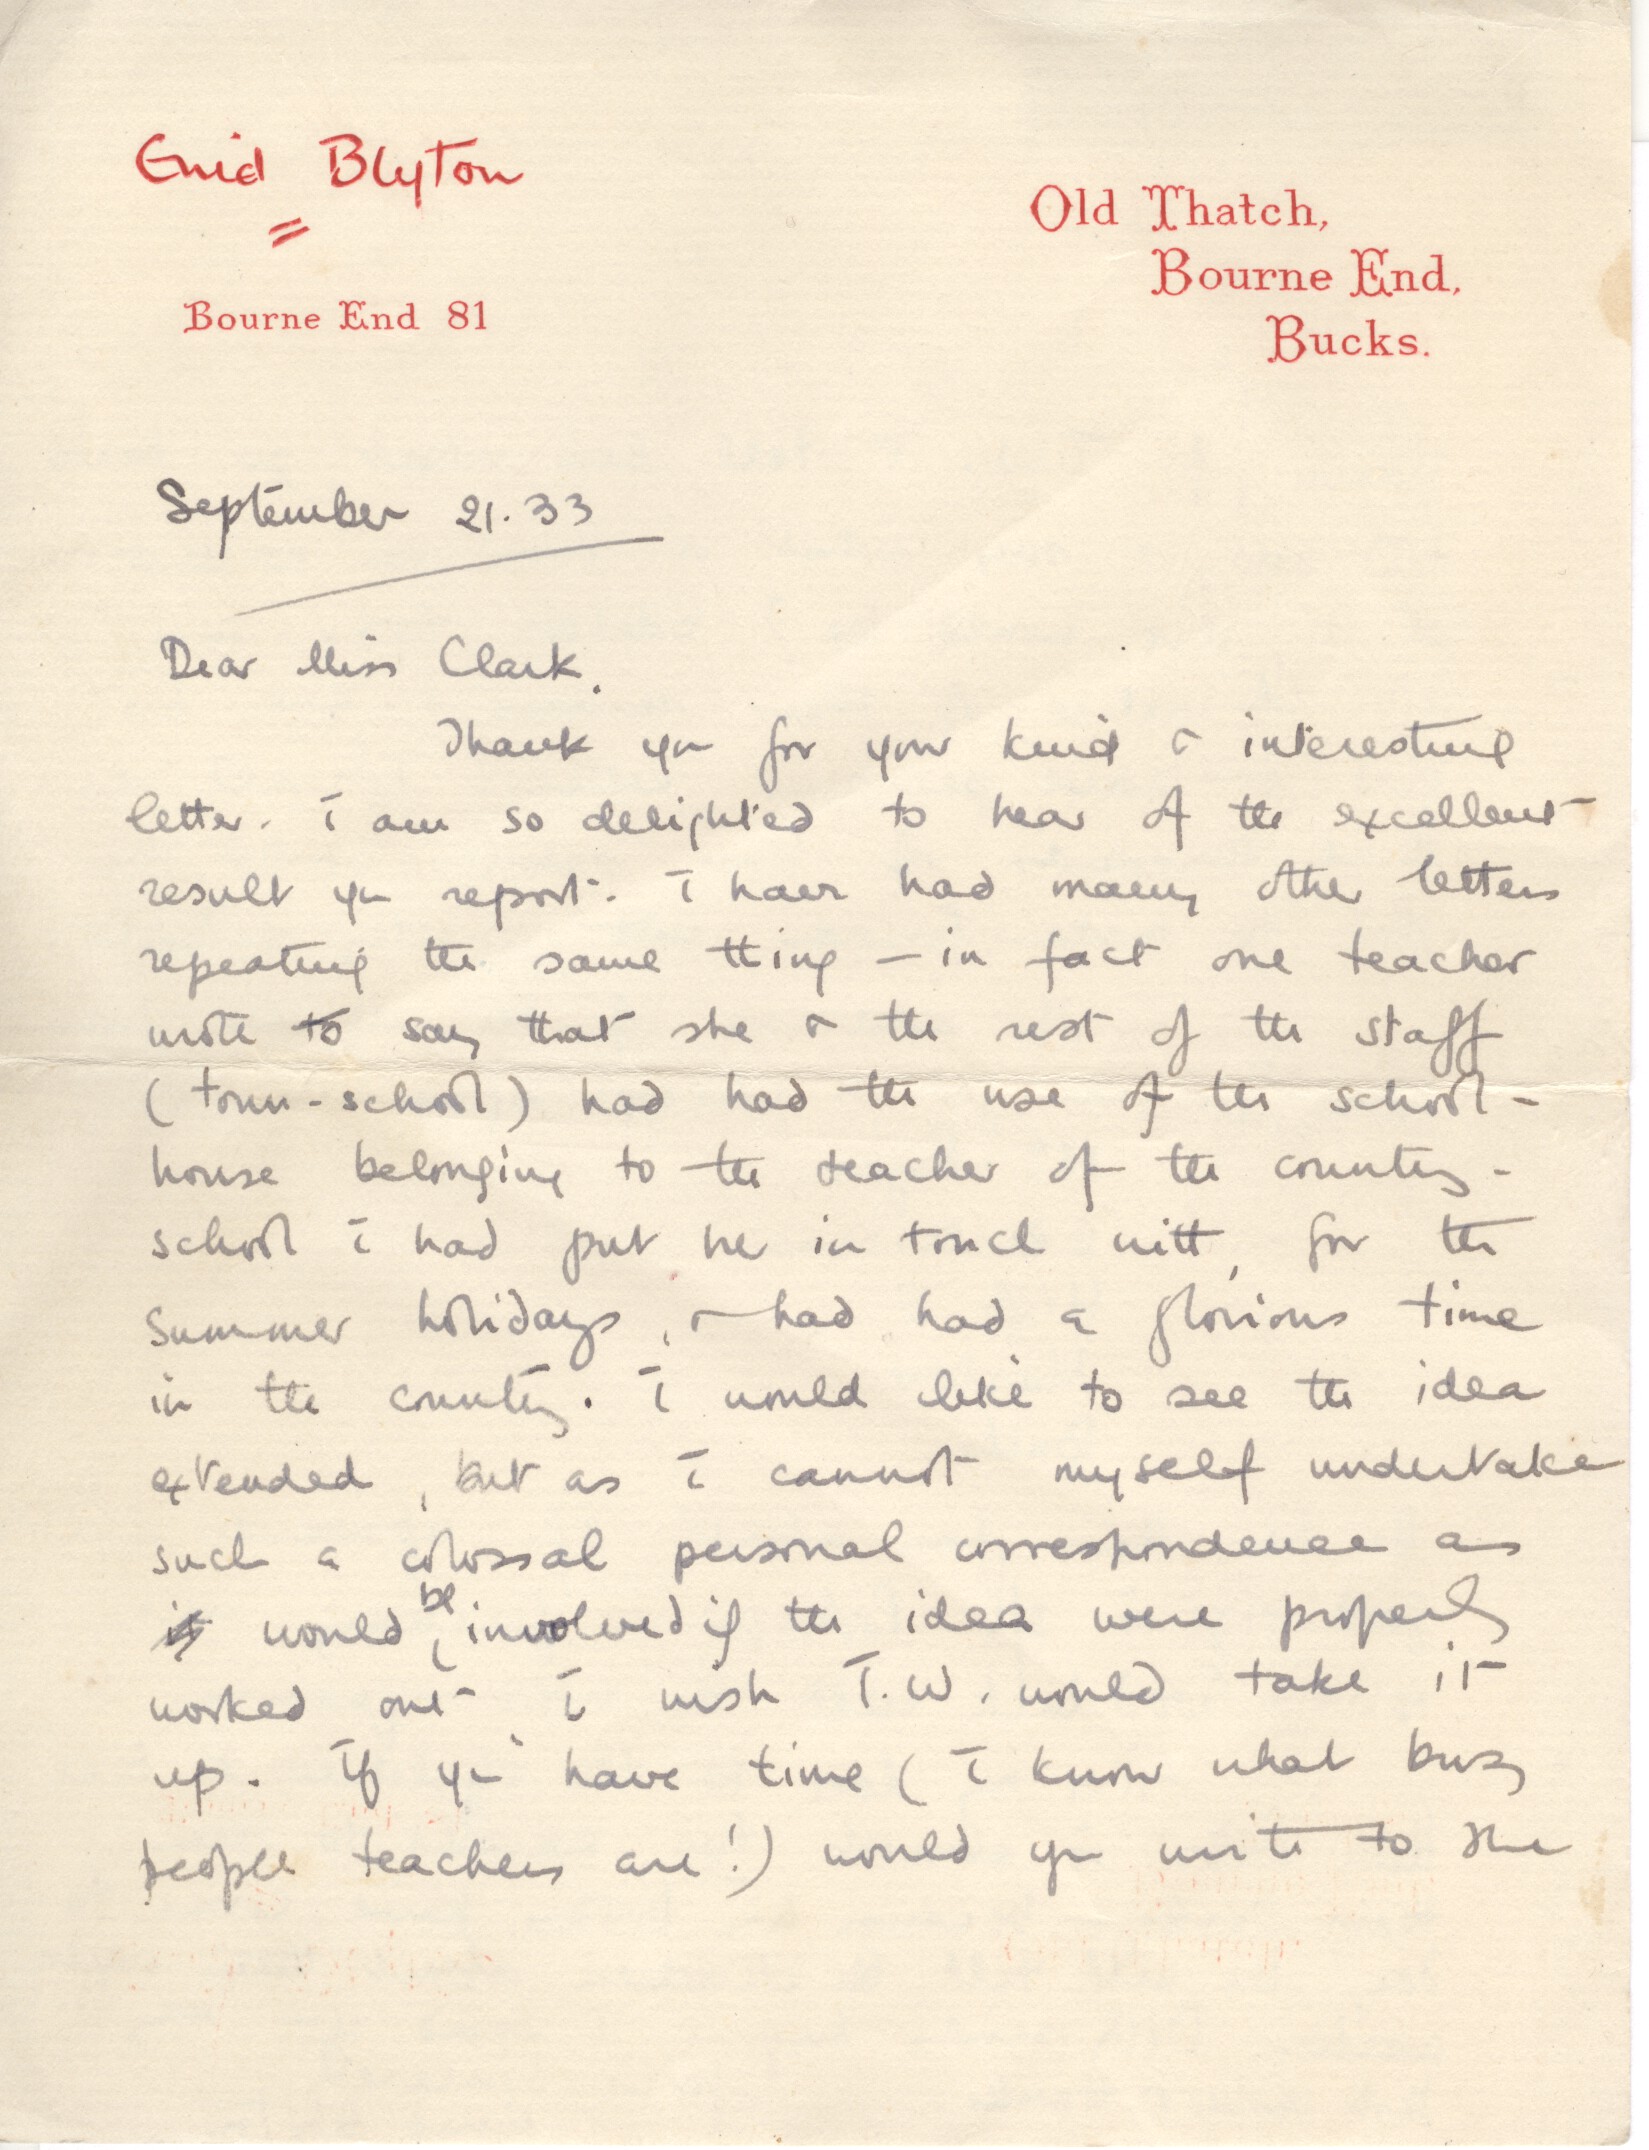 Enid Blyton
Bourne End 81
Old Thatch,
Bourne End,
Bucks.
September 21. 33
Dear Miss Clark.
Thank you for your kind & interesting
letter. I am so delighted to hear of the excellent
result you report. I have had many other letters
repeating the same thing – in fact one teacher
wrote to say that she & the rest of the staff
(town-school) had had the use of the school-
house belonging to the teacher of the country-
school I had put her in touch with, for the
summer holidays, & had had a glorious time
in the country. I would like to see the idea
extended, but as I cannot myself undertake
such a colossal personal correspondence as
it would be involved if the idea were properly
worked out I wish T.W. would take it
up. If you have time (I know what busy
people teachers are!) would you write to the